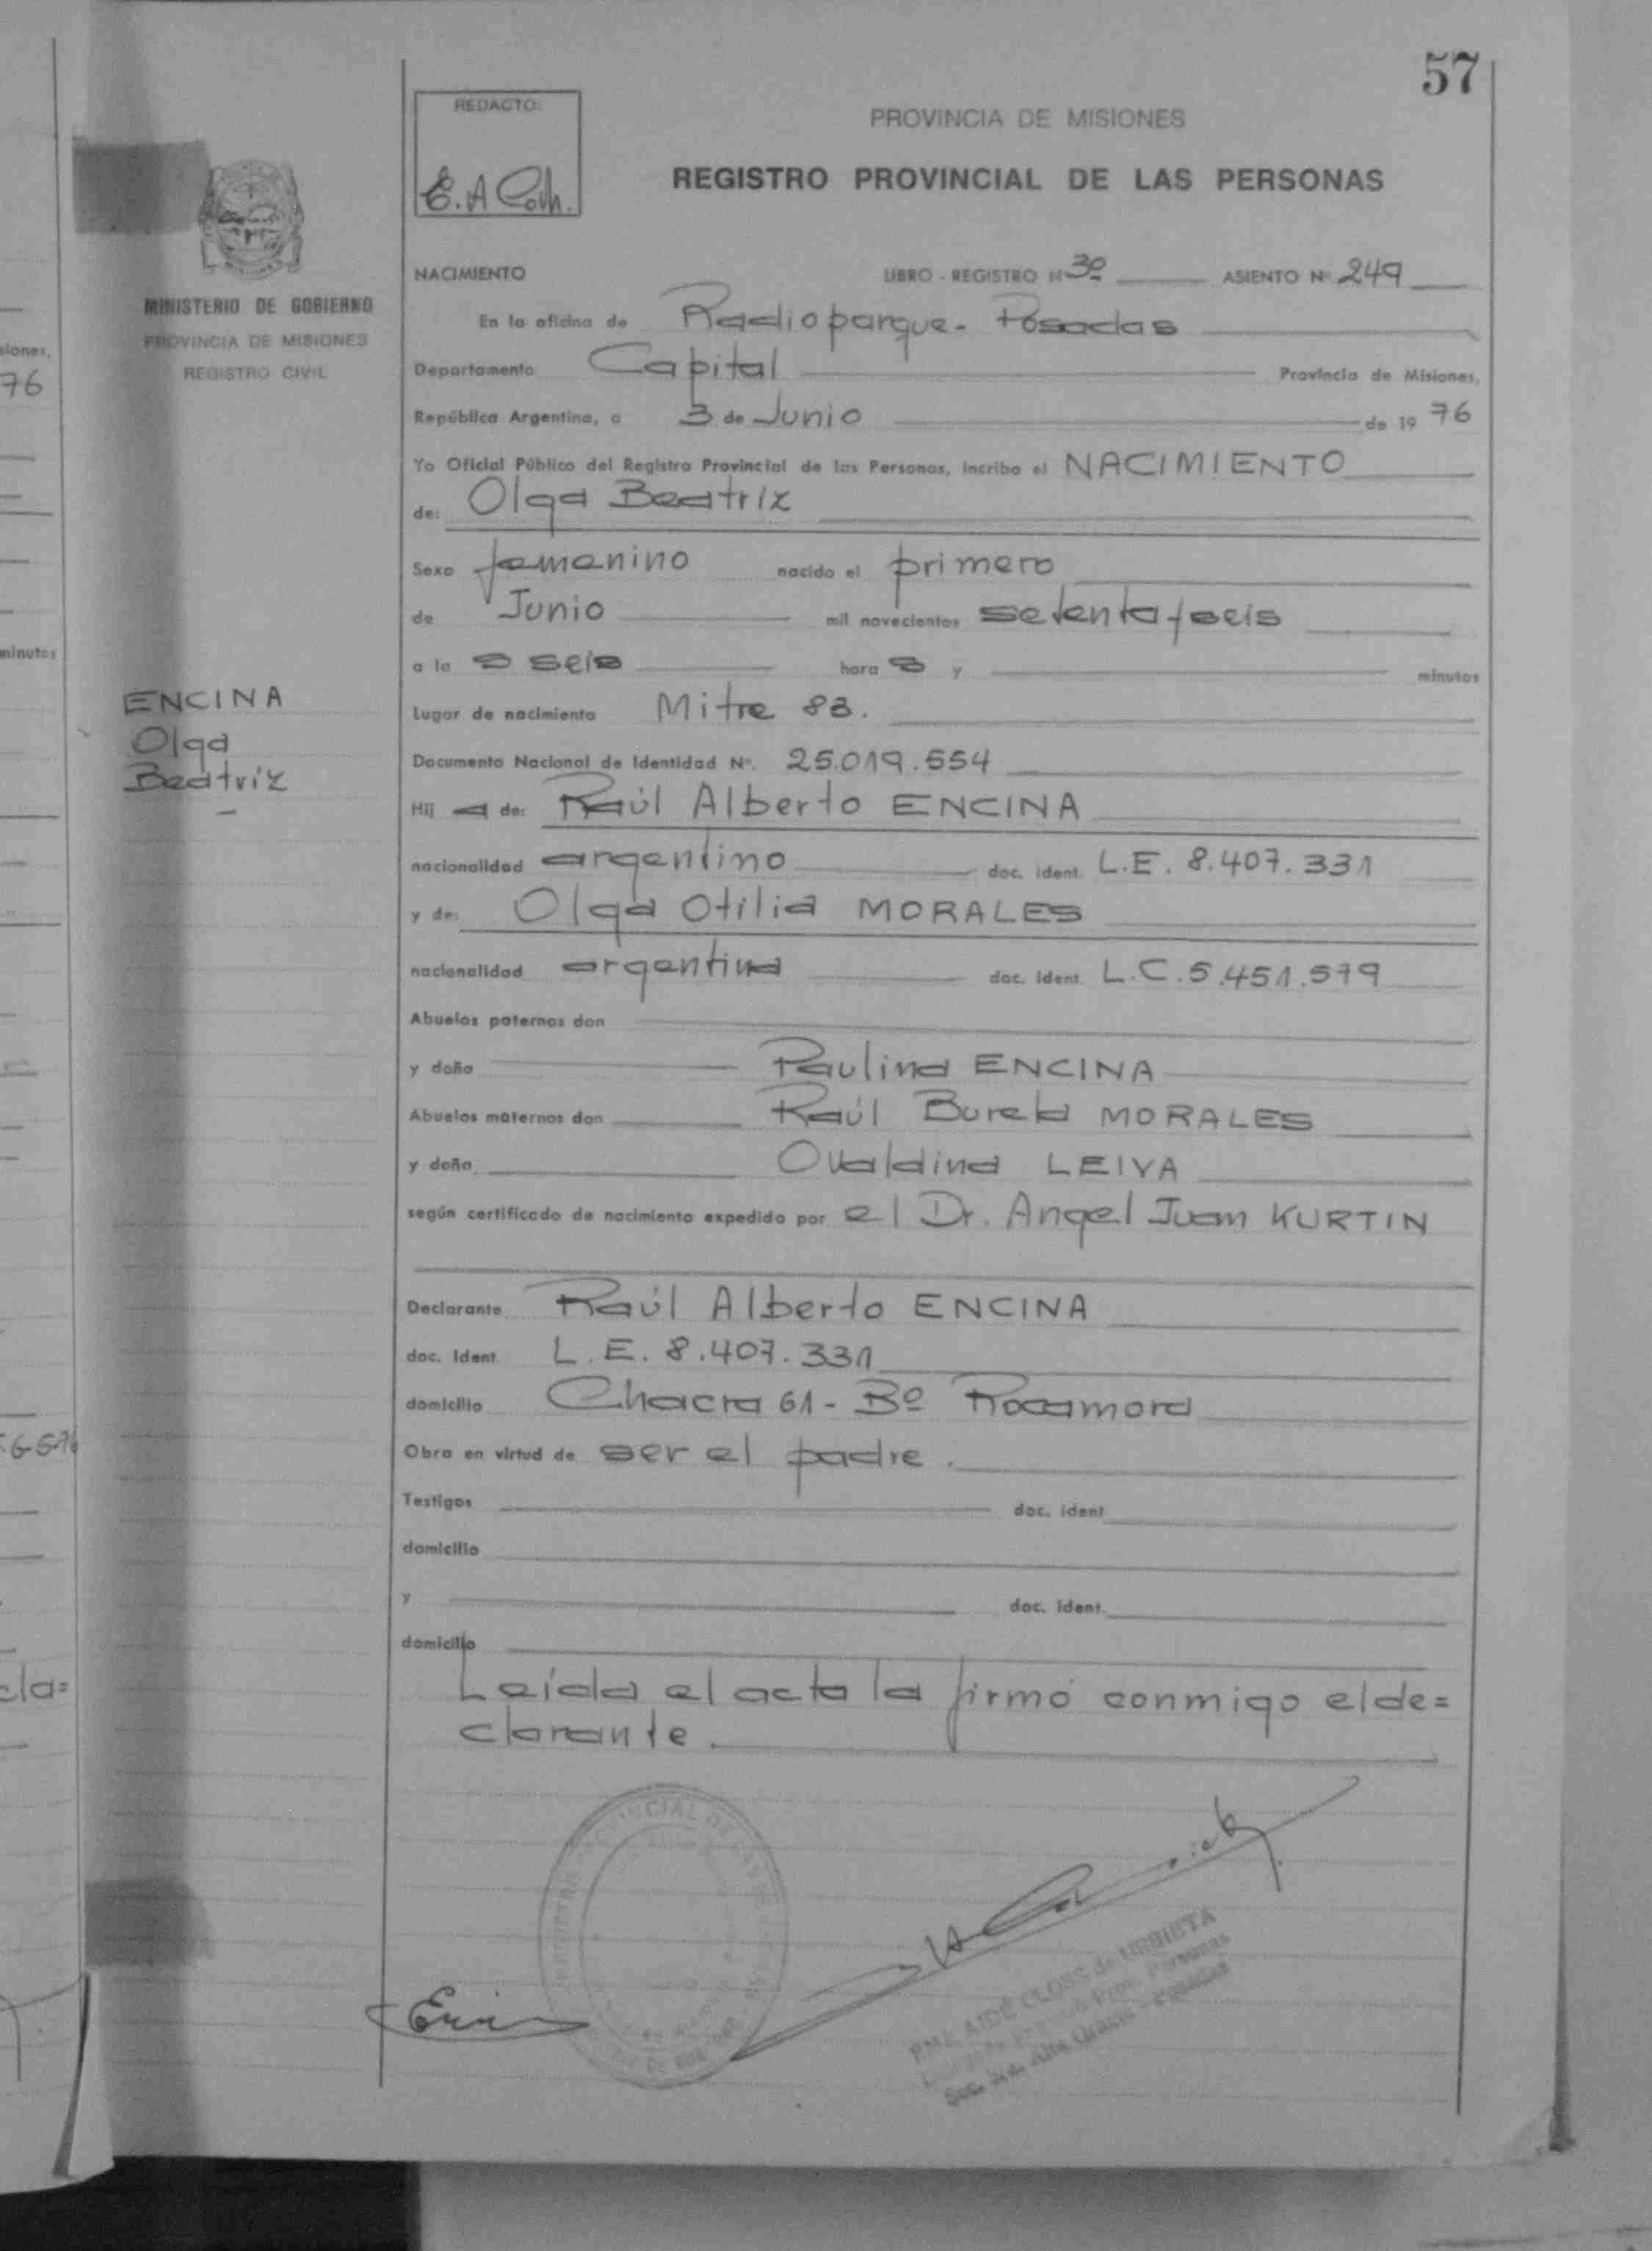 57
REDACTO:
E.A
PROVINCIA DE MISIONES
REGISTRO PROVINCIAL DE LAS PERSONAS
MINISTERIO DE GOBIERNO
PROVINCIA DE MISIONES
REGISTRO CIVIL
siones,
76
minutos
ENCINA
Olga
Beatriz
NACIMIENTO LIBRO - REGISTRO Nº 3º ASIENTO Nº 249
En la oficina de Radioparque - Posadas
Departamento Capital Provincia de Misiones,
República Argentina, a 3 de Junio de 19 76
Yo Oficial Público del Registro Provincial de las Personas, incribo el NACIMIENTO
de: Olga Beatriz
Sexo femenino nacido el primero
de Junio mil novecientos setenta y seis
a la s seis hora s y minutos
Lugar de nacimiento Mitre 83.
Documento Nacional de Identidad Nº. 25.019.554
Hij a de: Raúl Alberto ENCINA
nacionalidad argentino doc. ident. L.E. 8.407.331
y de: Olga Otilia MORALES
nacionalidad argentina doc. ident. L.C. 5.451.579
Abuelos paternos don
y doña Paulina ENCINA
Abuelos maternos don Raúl Burela MORALES
y doña Ovaldina LEIVA
según certificado de nacimiento expedido por el Dr. Angel Juan KURTIN
Declarante Raúl Alberto ENCINA
doc. Ident. L.E. 8.407.331
domicilio Chacra 61 - Bº Rocamora
Obra en virtud de ser el padre.
Testigos doc. ident
domicilio
y doc. ident.
domicilio
Leída el acta la firmó conmigo el de=
clarante.
AIDE CLOSS de URBIETA